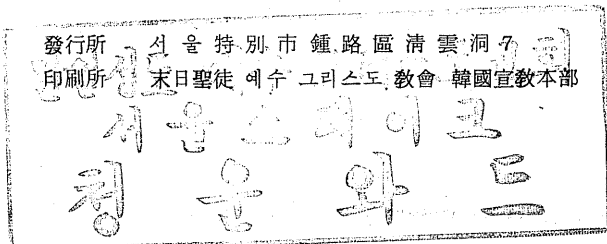 發行所 서울特別市鍾路區淸雲洞 7
印刷所 末日聖徒 예수 그리스도 敎會 韓國宣敎本部
서울스테이크
청운와드